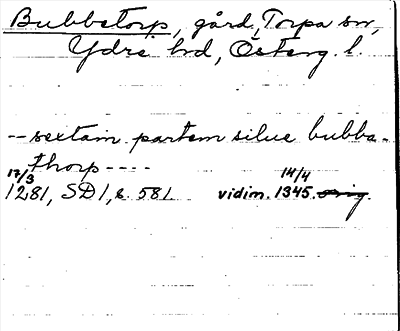 Bubbetorp, gård, Torpa sn,
Ydre hd, Österg. l.
-- sextam partem silue bubba-
thorp ----
17/3 14/4
1281, SD 1, s. 581. vidim. 1345. orig.